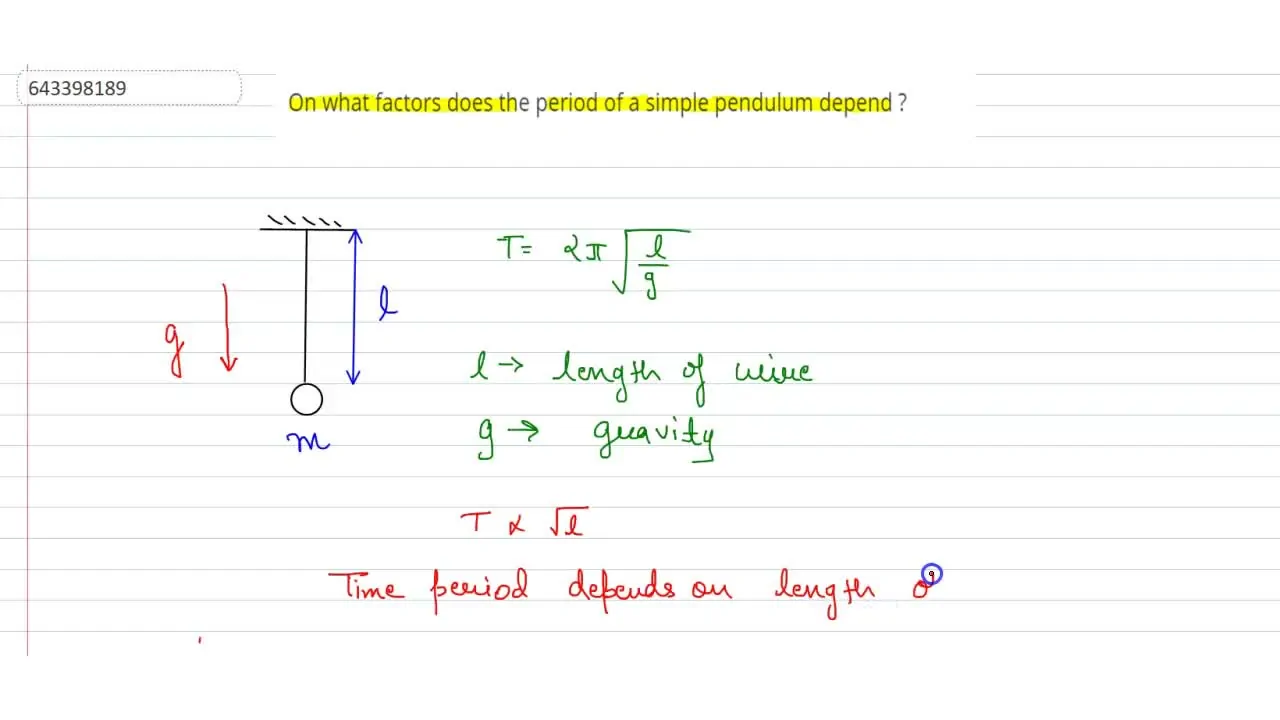 643398189
On what factors does the period of a simple pendulum depend ?
T = 2π √(l/g)
g
l
l → length of wire
g → gravity
m
T ∝ √l
Time period depends on length o